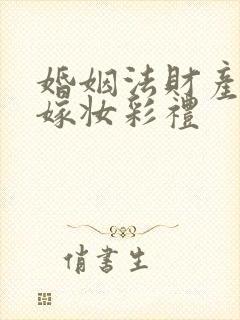 婚姻法財產
嫁妝彩禮
俏書生